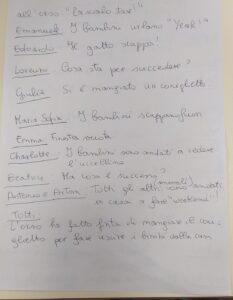 all'orso "lascialo stare!"
Emanuele: I Bambini urlano "Yeah!"
Edoardo: Il gatto scappa!
Lorenzo: Cosa sta per succedere?
Giulia: Si è mangiato un coniglietto
Maria Sofia: I Bambini scappano fuori
Emma: Finita scuola
Charlotte: I Bambini sono andati a vedere
l'uccellino
Beatrice: Ma cosa è successo?
Antonio e Anton: Tutti gli altri (animali) sono andati
a casa a fare "weekend"!
Tutti:
L'orso ha fatto finta di mangiare il coni-
glietto per fare uscire i bimbi dalla casa